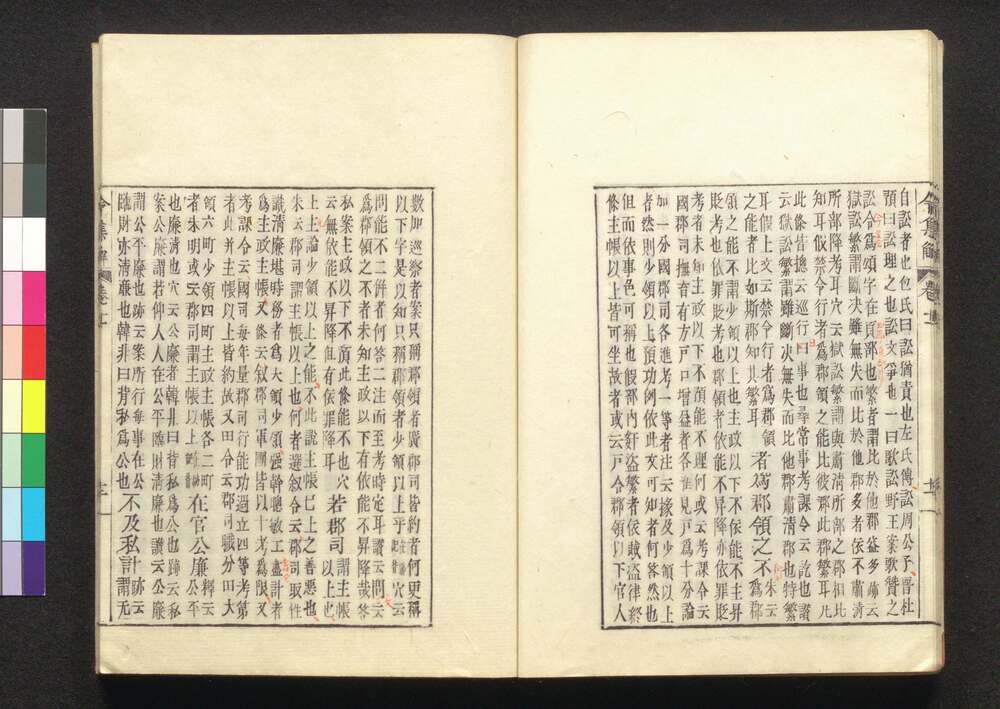 自訟者也包氏曰訟猶責也左氏傳訟周公予晋杜
預曰訟理之也訟文爭也一曰歌訟野王案歌贊之
訟令爲頌字在頁部也繁者謂比於他郡益多跡云
獄訟繁謂斷决雖無失而比於他郡多者依不肅清
所部降考耳穴云獄訟繁謂與肅清所部之郡相比
知耳仮禁令行者爲郡領之能比彼郡此郡繁耳凡
此條皆摠云巡行曰事也尋常事考課令云訖也讃
云獄訟繁謂雖斷决無失而比他郡肅清郡也特繁
耳假上文云禁令行者爲郡領
之能者比如斯郡知其繁耳
者爲郡領之不
朱云
爲郡
領之能不謂少領以上也主政以下不依能不主昇
貶考也依罪貶考也郡領者依能不昇降亦依罪貶
考者未知主政以下不預能不理何或云考課令云
國郡司撫育有方戸口增益者各准見戸爲十分論
加一分國郡司各進考一等者注云掾及少領以上
者然則少領以上預功例依此文可知者何答然也
但而依事色可稱也假部内姧盗者依賊盗律祭
條主帳以上皆可坐故者或云戸令郡領以下官人
令集解 卷十
數加巡察者案只稱郡領者廣郡司皆約者何更稱
以下字是以知只稱郡領者少領以上乎
穴云
問能不二件者何答二注而至考時定耳讃云問云
爲郡領之不者未知主政以下有依能不昇降哉答
私案主政以下不預此條能不也穴
云無依能不昇降但有依罪降耳
若郡司
謂主帳
以上也
朱云郡司謂主帳以上也何者選叙令云郡司取性
識清廉堪時務者爲大領少領强幹聰敏工書計者
爲主政主帳又條云叙郡司軍團皆以十考爲限又
考課令云國司每年量郡司行能功過立四等考第
者此并主帳以上皆約故又田令云郡司職分田大
領六町少領四町主政主帳各二町
者朱明或云郡司謂主帳以上時
在官公廉
釋云
公平
也廉清也穴云公廉者韓非曰背私爲公也跡云私
案公廉謂若仰人人在公平臨財清廉也讃云公廉
謂公平廉也跡云案所行每事在公
臨財亦清廉也韓非曰背私爲公也
不及私計
謂无
令集解 卷十